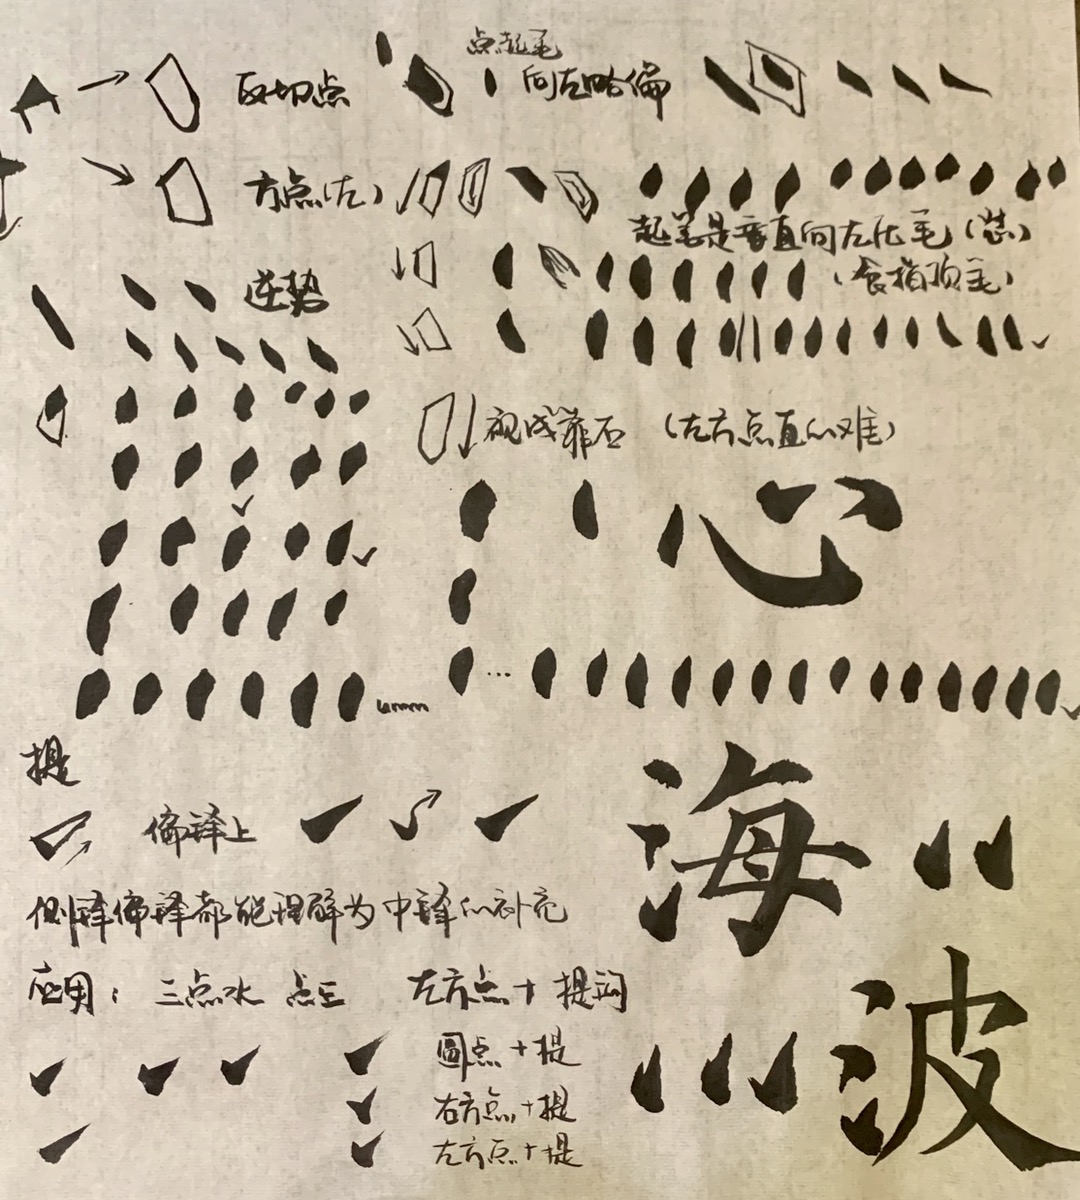 点起毛
反切点 向左略偏
方点(左)
起笔是垂直向左压毛(怼)
逆势 (食指顶毛)
视成靠石 (左方点直的难)
心
提
偏锋上
海
侧锋偏锋都能理解为中锋的补充
应用: 三点水 点三 左方点+提
圆点+提
右方点+提
左方点+提
波